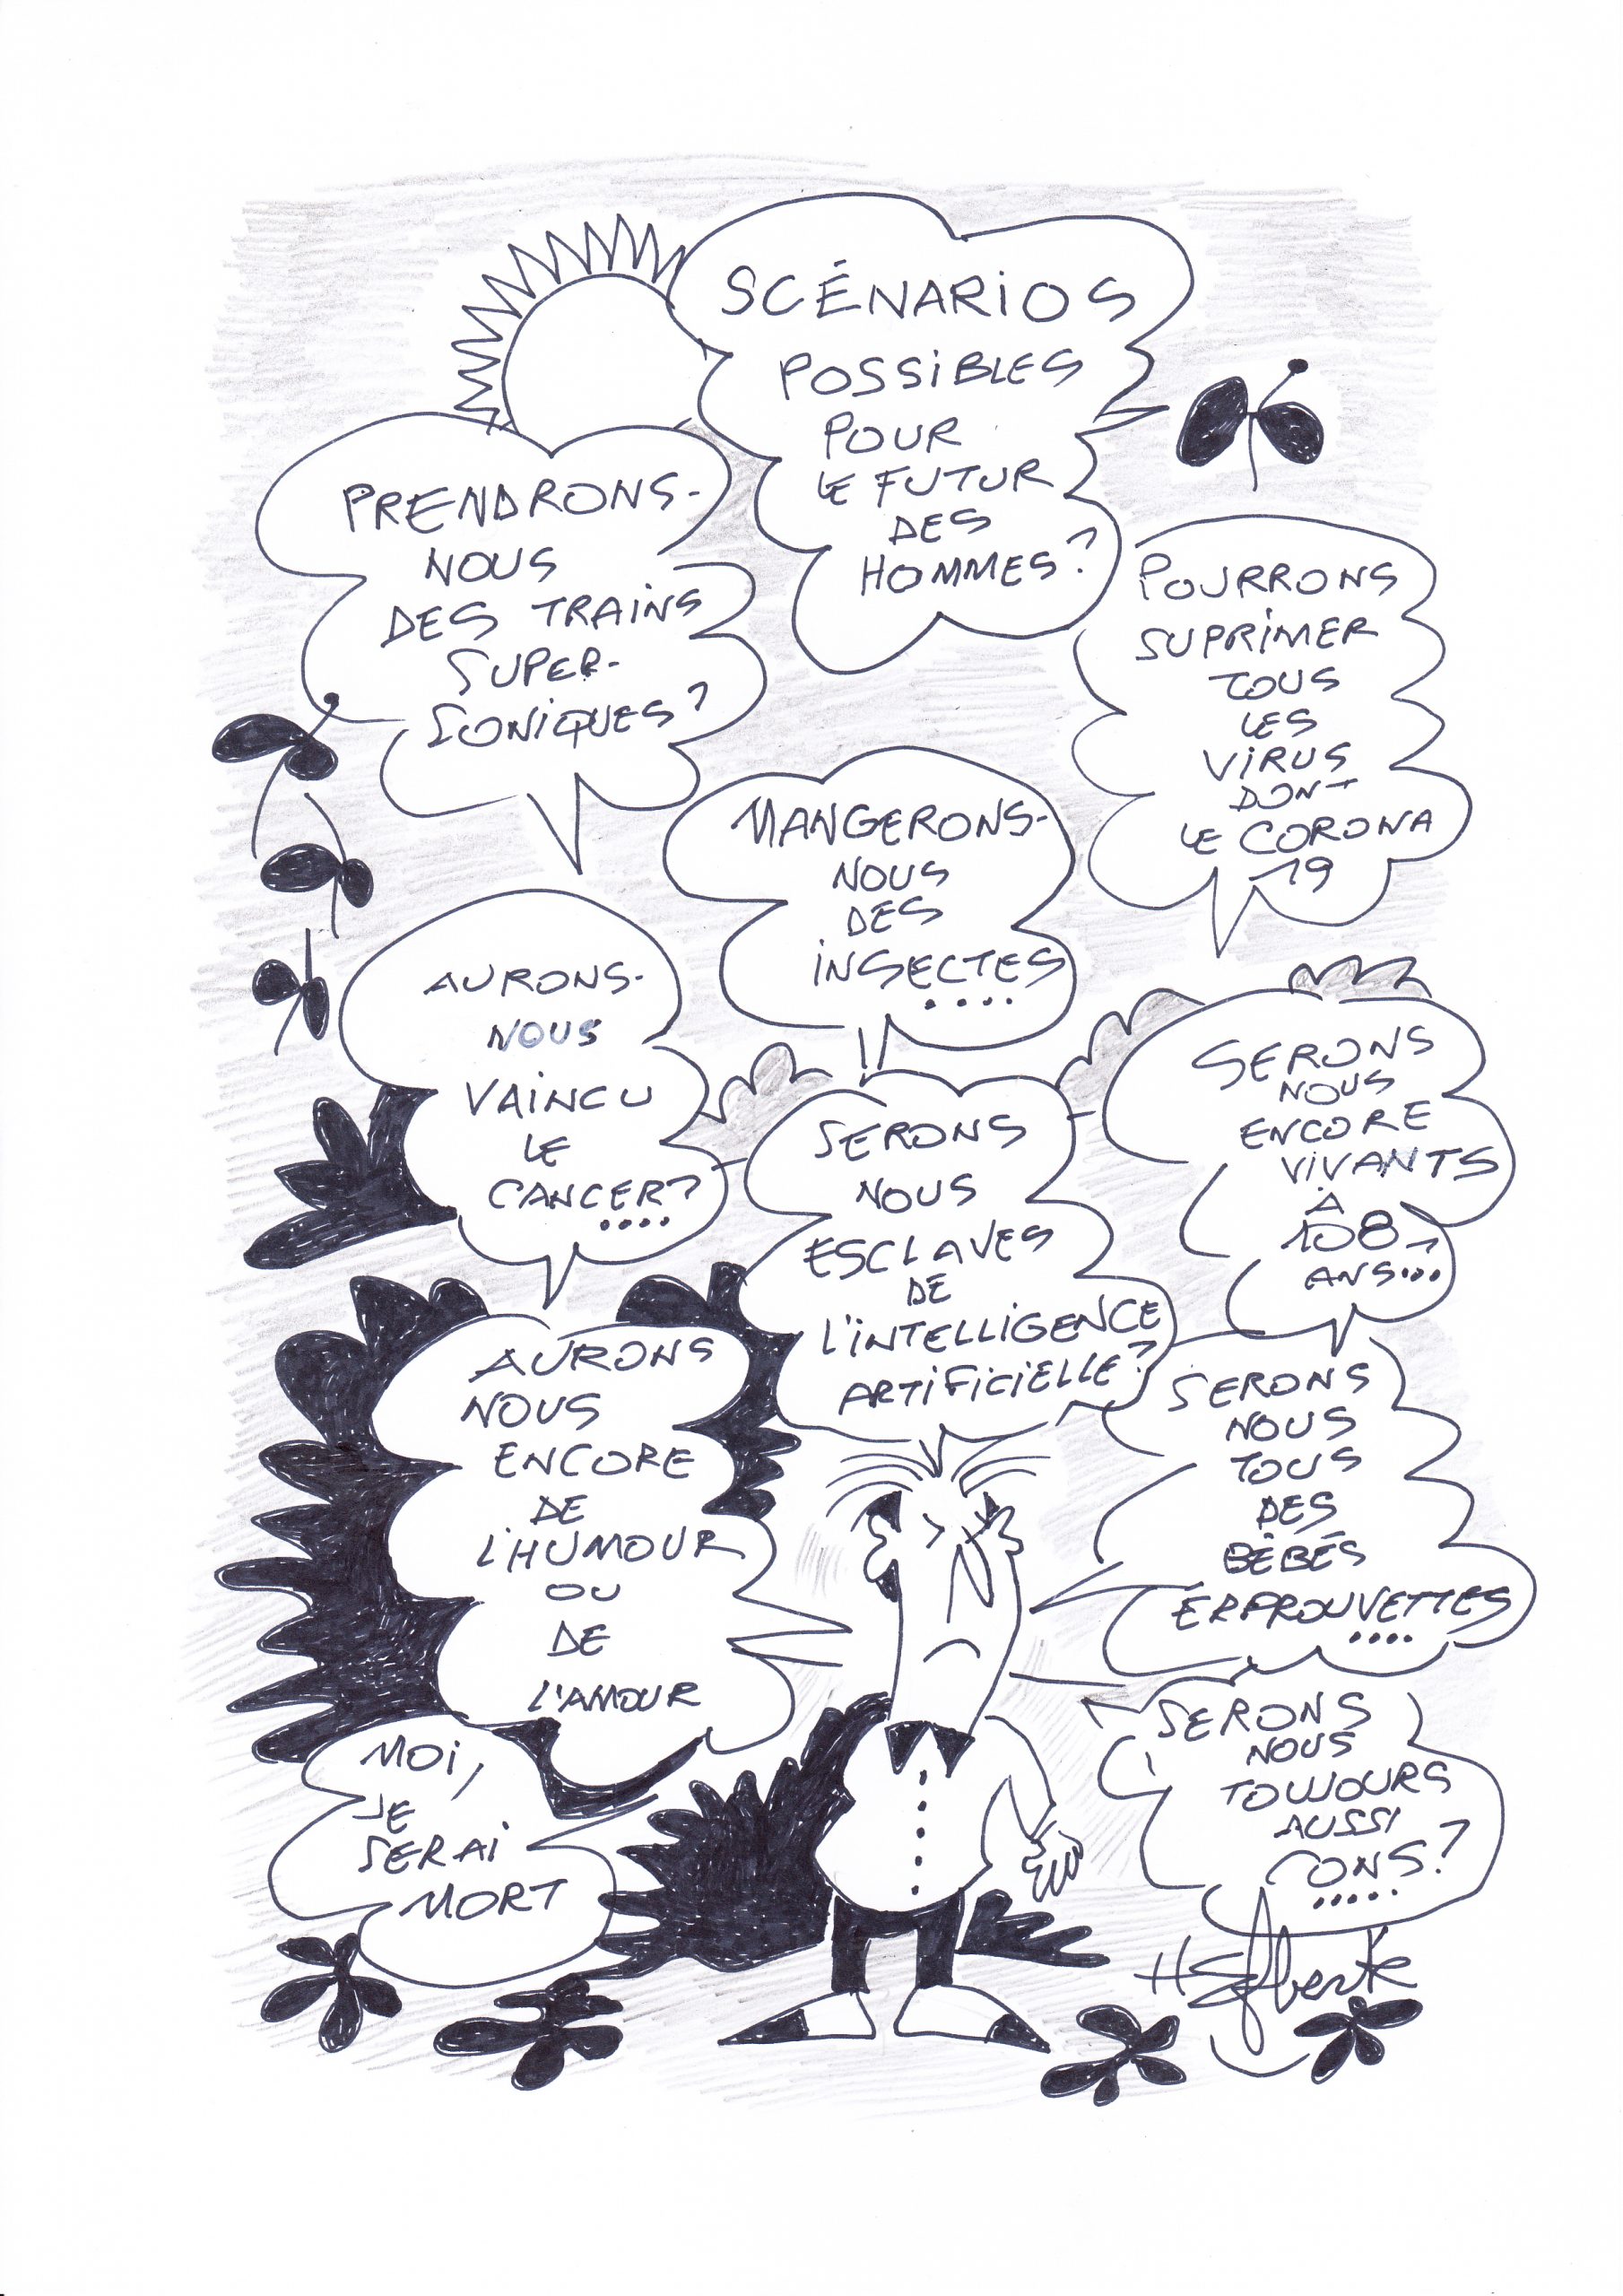 SCÉNARIOS
POSSIBLES
POUR
LE FUTUR
DES
HOMMES?
PRENDRONS-
NOUS
DES TRAINS
SUPER-
SONIQUES?
POURRONS
SUPRIMER
TOUS
LES
VIRUS
DONT
LE CORONA
19
MANGERONS-
NOUS
DES
INSECTES
....
AURONS-
NOUS
VAINCU
LE
CANCER?
....
SERONS
NOUS
ESCLAVES
DE
L'INTELLIGENCE
ARTIFICIELLE?
SERONS
NOUS
ENCORE
VIVANTS
À
108
ANS...
AURONS
NOUS
ENCORE
DE
L'HUMOUR
OU
DE
L'AMOUR
SERONS
NOUS
TOUS
DES
BÉBÉS
ERPROUVETTES
....
MOI,
JE
SERAI
MORT
SERONS
NOUS
TOUJOURS
AUSSI
CONS?
.....